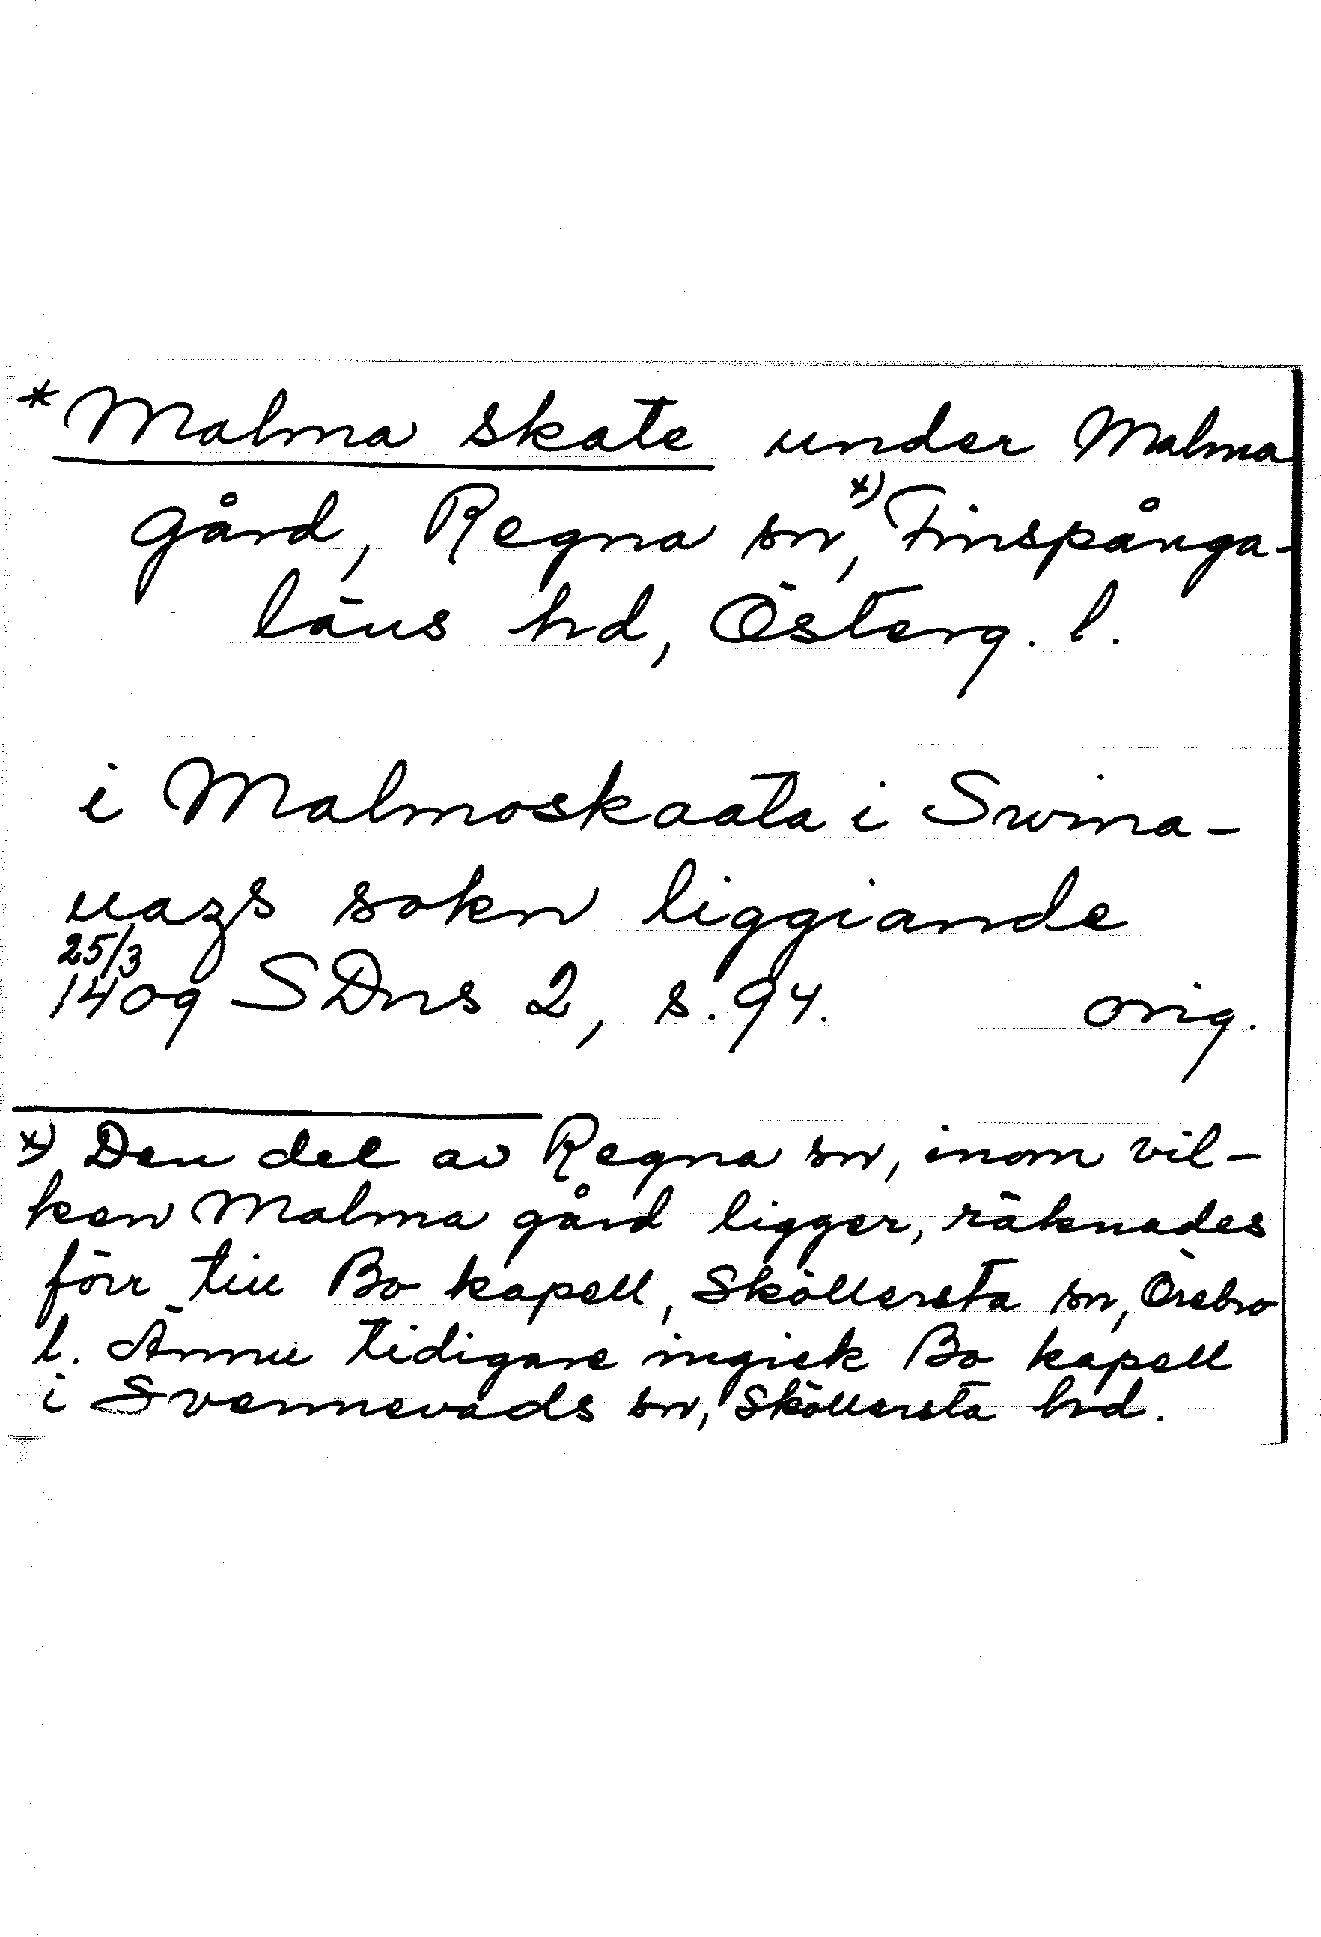 * Malma skate under Malma
gård, Regna sn, x) Finspånga-
läns hd, Österg. l.
i Malmoskaata i Swina-
uazs sokn liggiande
25/3
1409 SDns 2, s. 94. orig.
x) Den del av Regna sn, inom vil-
ken Malma gård ligger, räknades
förr till Bo kapell, Sköllersta sn, Örebro
l. Ännu tidigare ingick Bo kapell
i Svennevads sn, Sköllersta hd.